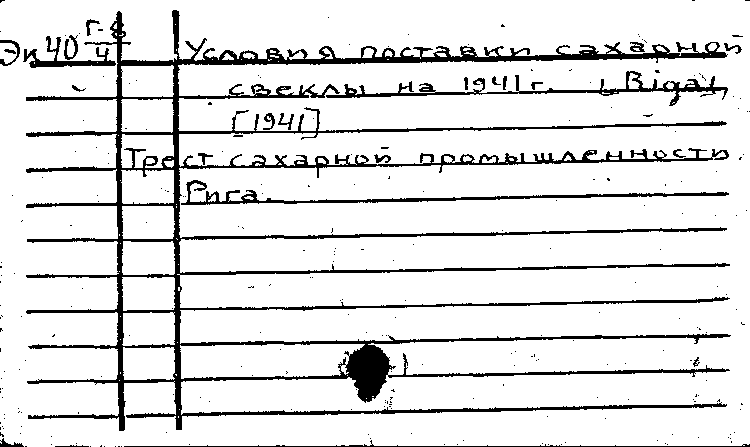 Эк 40 Г-8/4 Условия поставки сахарной
свеклы на 1941 г. [Riga],
[1941]
Трест сахарной промышленности.
Рига.